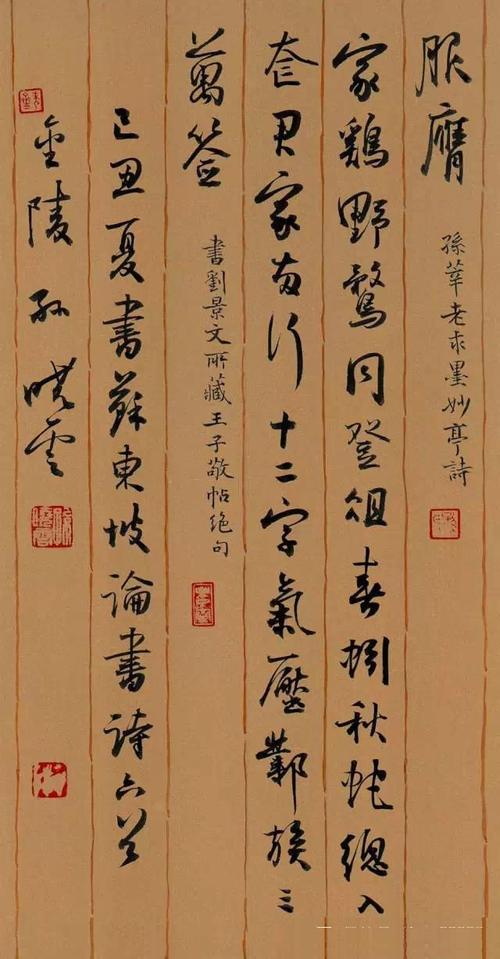 服膺
孫莘老求墨妙亭詩
家鷄野鶩同登俎春蚓秋蛇總入
奩君家兩行十二字氣壓鄴侯三
萬签
書劉景文所藏王子敬帖絕句
己丑夏書蘇東坡論書詩六首
金陵孙晓云